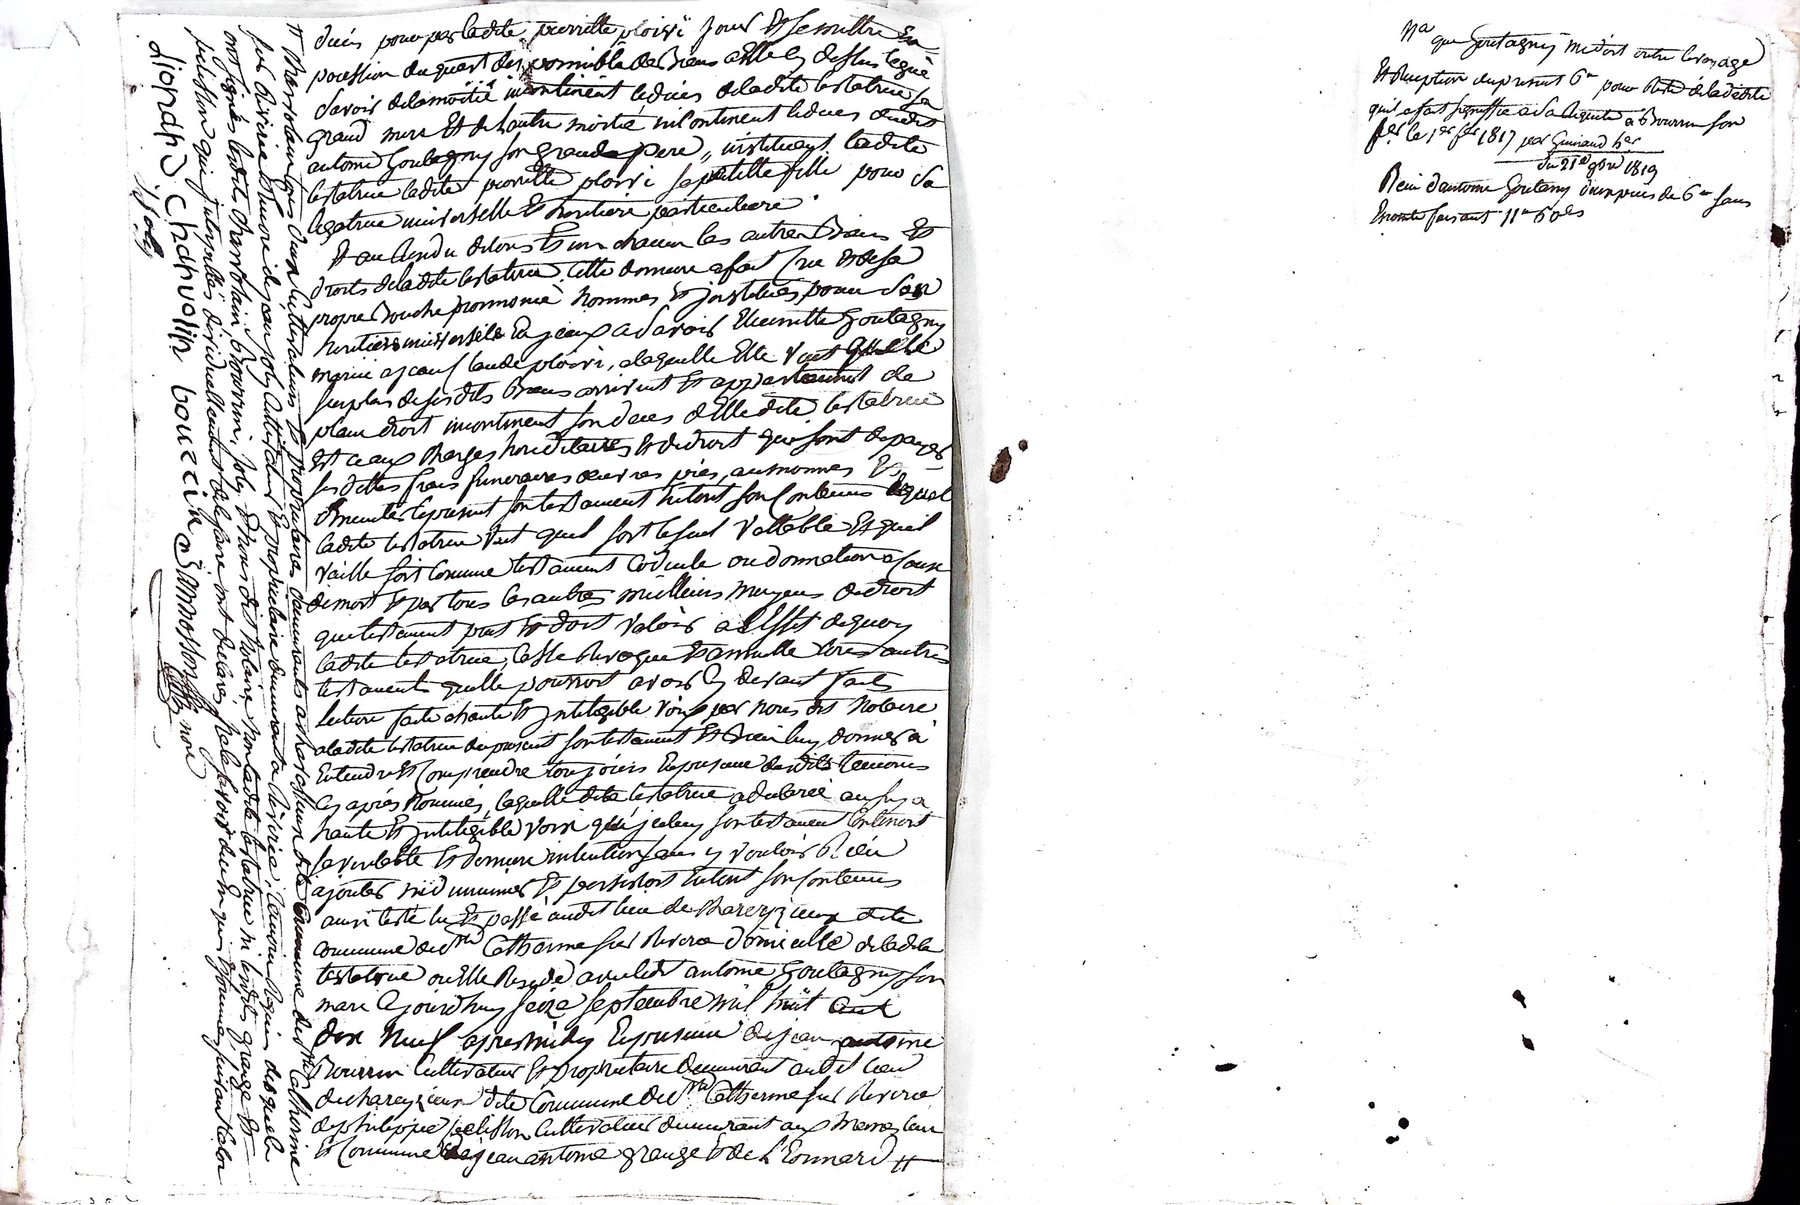 decès pour par ladite pierrette ploivi jouir Et se mettre En
possession du quart des immeuble des biens a Elle cy dessus legué
Savoir de la moitié incontinent le decès de ladite testatrice sa
grand mere Et de l'autre moitié incontinent le deces dudit
antoine Goutagny son grand pere,, instituant ladite
testatrice ladite pierrette ploivi sa petitte fille pour sa
legatrice universelle Et heritiere particuliere.
Et au residu de tous Et un chacun les autres biens Et
droits de ladite testatrice, Cette derniere a fait Cree Et de sa
propre bouche prononcé nommés Et institués pour son
heritiere universelle En jceux a Savoir Goutagny
mariée a jean Claude ploivi, a laquelle Elle veut que le
surplus de ses dits biens arrivent Et appartiennent de
plein droit incontinent son deces d'Elle dite testatrice
Et ce aux charges hereditaires Et de droit qui sont de payer
ses dettes frais funeraires œuvres pies, aumonnes Et
d'Executer le present son testament En tout son Contenus lequel
ladite testatrice veut quil sort le seul vallable Et quil
vaille soit Comme testament Codicile ou donnation a Cause
de mort Et par tous les autres meilleurs moyens de droit
que testament peut Et doit valoir a l'Effet de quoy
ladite testatrice, Casse Revoque Et annulle tous autres
testaments quelle pourroit avoir cy devant faits
lecture faite a haute Et jntelegible voix par nous dit Notaire
a ladite testatrice du present son testament Et bien luy donner a
Entendre Et Comprendre toujours En presence desdits temoins
Cy après Nommés, laquelle dite testatrice a declarée aussy a
haute Et jntelegible voix que jceluy son testament Contenoit
sa veritable Et derniere intention sans y vouloir Rien
ajouter ni diminuer Et persistoit En tout son Contenus
ainsi testé lu Et passé audit lieu de Chareyzieux dite
commune de Ste Catherine sur Riverie domicille de ladite
testatrice ou Elle Reside avec ledit antoine Goutagny son
mari Ce jourd'huy seize septembre mil huit Cent
dix Neuf apres midy En presence de jean antoine
Bourrin Cultivateur Et proprietaire demeurant audit lieu
de chareyzieux dite Commune de Ste Catherine sur Riverie
de philippe pelisson Cultivateur demeurant aux memes lieu
Et Commune de jean antoine grange Et de L'Eonnard //
// Charbolain tous deux Cultivateurs Et proprietaires demeurants a dite Commune de Ste Catherine
sur Riverie Et Encore de jean joly Cultivateur Et proprietaire demeurant a Riverie, temoins Requis desquels
ont signés lesdits Charbolain, bourrin, joly Et Nous dit Notaire Non ladite testatrice ni lesdits grange Et
pelisson qui jnterpellés individuellement de le faire ont declarés ne le savoir de ce Enquis Et sommés suivant la loi
lionard charvolin bourrin
j joly
nore
Na que Goutagny m'edoit outre le voyage
Et Reception du present 6 # pour
qu'il a fait signiffié a a Bourrin son
le 1er 1817 par Guinand her
Du 21e gbre 1819
Reçu d'antoine Goutany une piece de 6 # sans
faisant 11 # 60 es